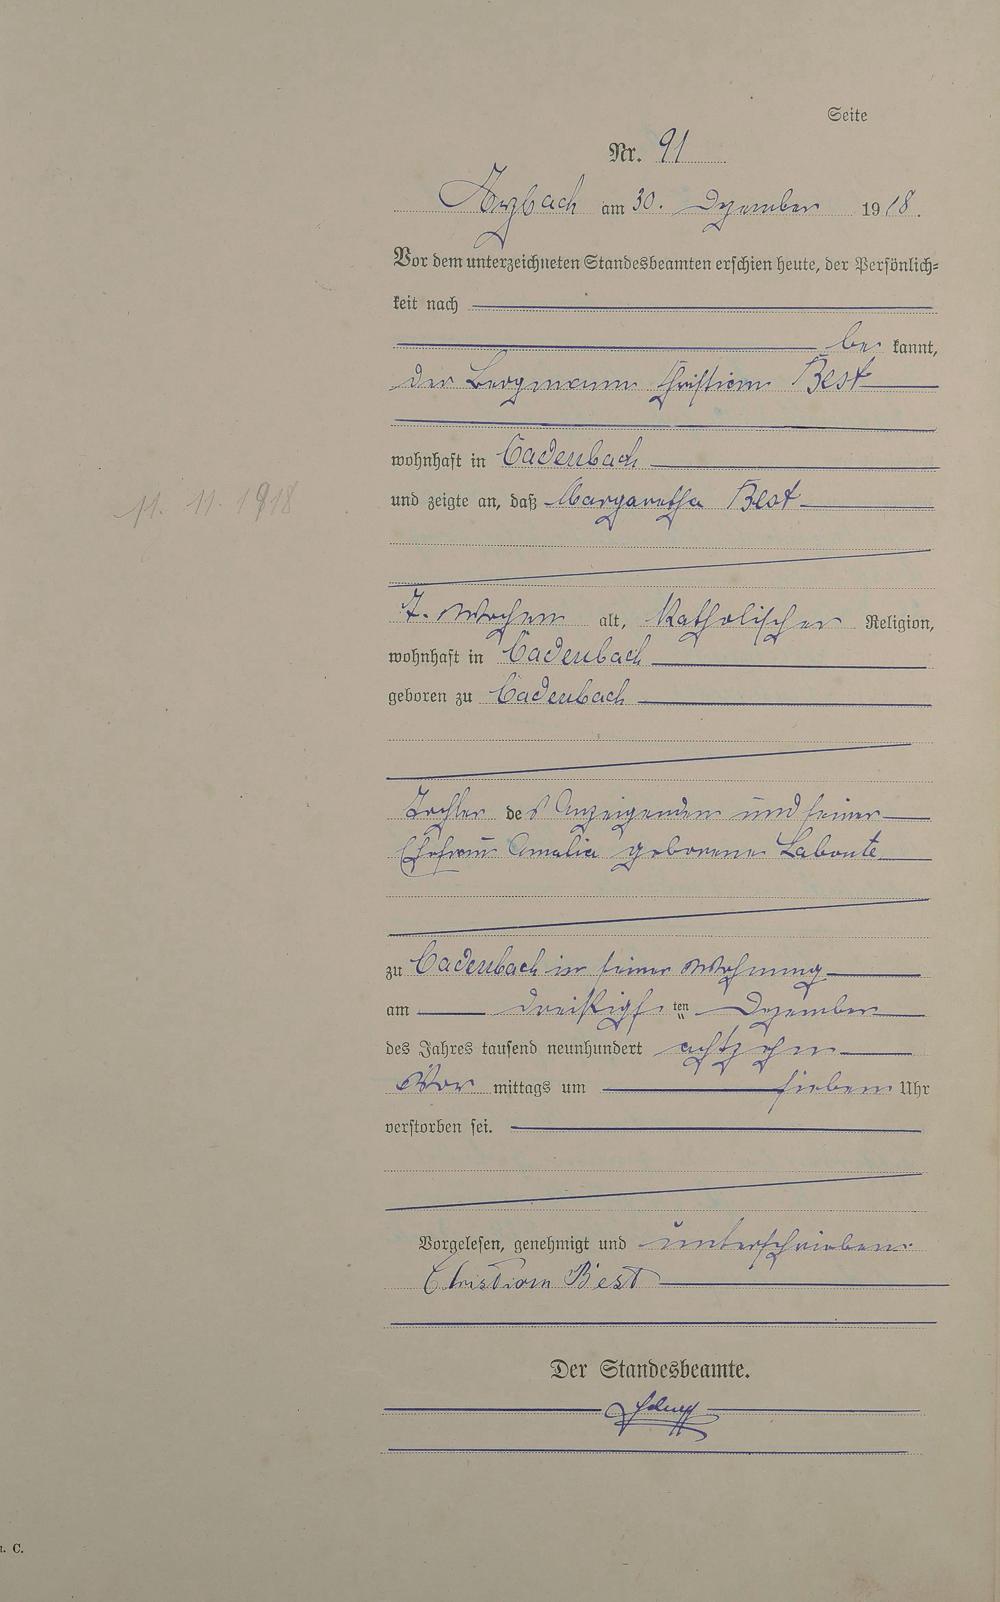 Seite
Nr. 91
Arzbach am 30. Dezember 1918.
Vor dem unterzeichneten Standesbeamten erschien heute, der Persönlich=
keit nach
be kannt,
der Bergmann Christian Best
wohnhaft in Cadenbach
und zeigte an, daß Margaretha Best
11. 11. 1918
7. Wochen alt, Katholischer Religion,
wohnhaft in Cadenbach
geboren zu Cadenbach
Tochter des Anzeigenden und seiner
Ehefrau Amalia geborene Labonte
zu Cadenbach in seiner Wohnung
am dreißigsten Dezember
des Jahres tausend neunhundert achtzehn
Vor mittags um sieben Uhr
verstorben sei.
Vorgelesen, genehmigt und unterschrieben
Christian Best
Der Standesbeamte.
u. C.